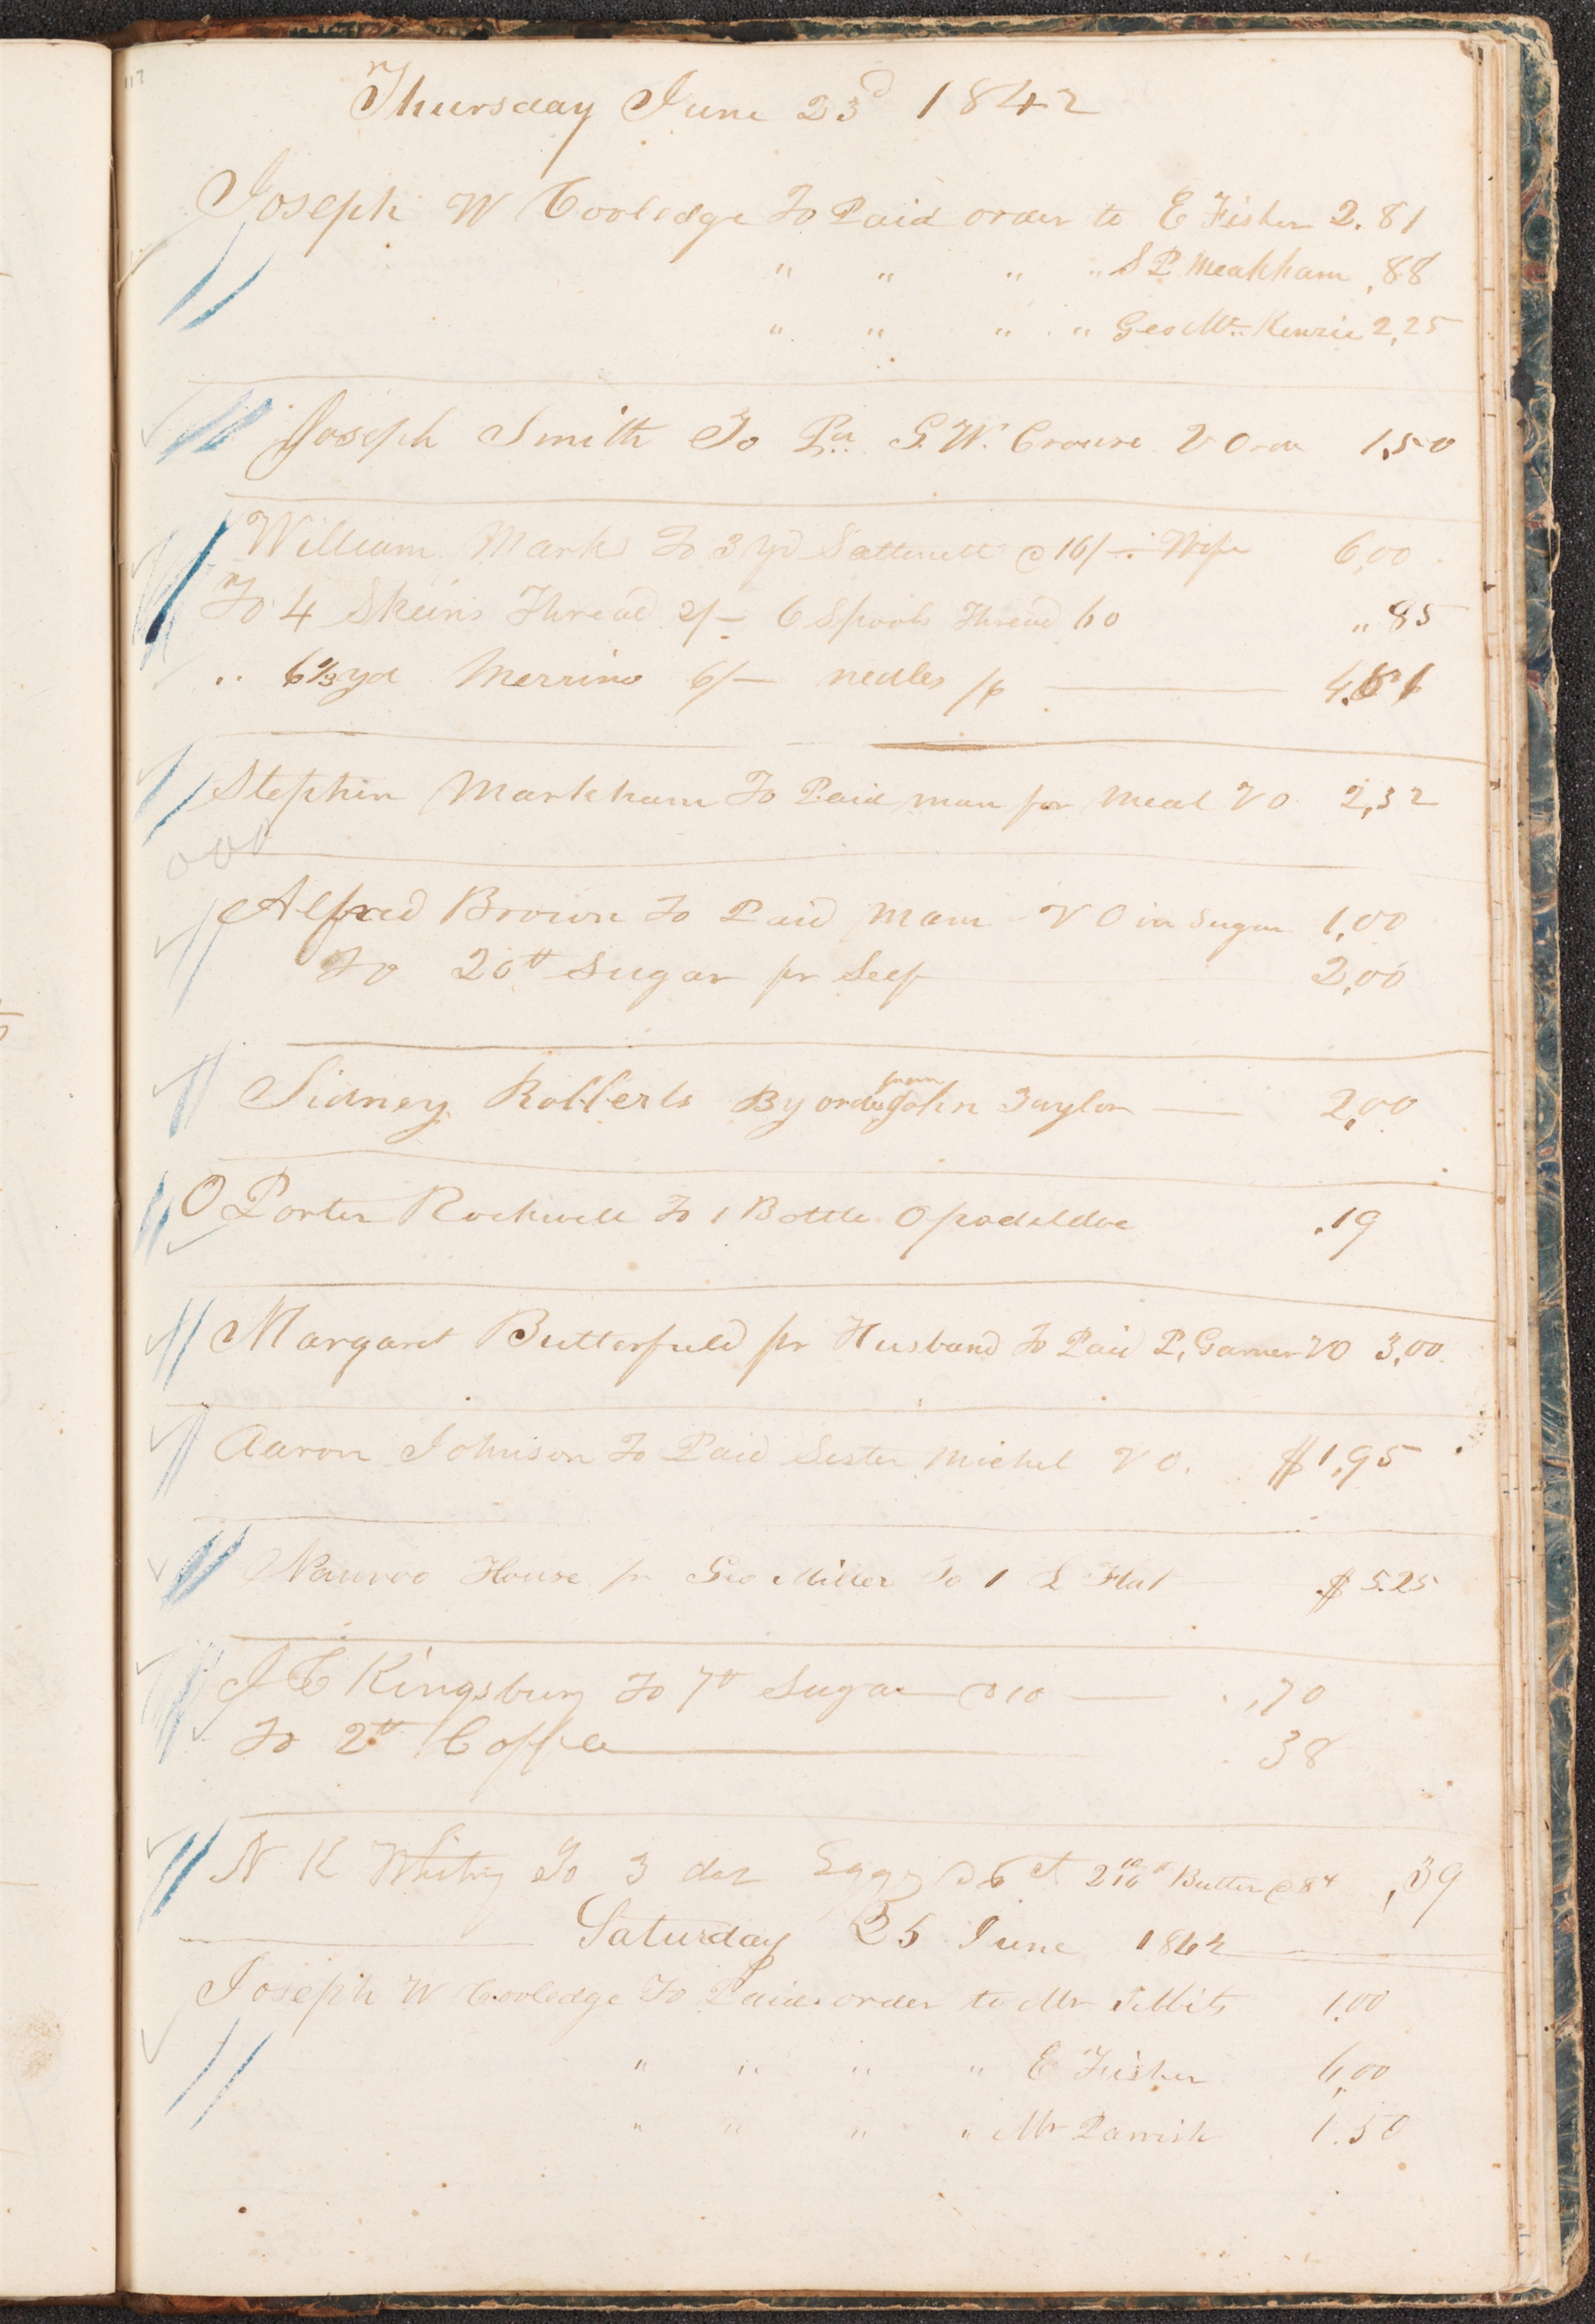 117
Thursday June 23d 1842
Joseph W Cooledge To Paid order to E Fisher 2.81
" " " " S P Meakham ,88
" " " " Geo Mc Kenzie 2,25
Joseph Smith To Pd G. W. Crouse V Order 1,50
William Marks To 3 Yd Sattinett @ 16/– Wife 6,00
To 4 Skeins Thread 2/– 6 Spools Thread 60 " 85
" 6 2/3 yd Merrino 6/– nedles /6 4.
Stephen Markham To Paid man for Meal V O 2,32
Alfred Brown To Paid Mam V O in Sugar 1,00
To 20 tt Sugar pr Self 2,00
Sidney Robberts By order from John Taylor 2,00
O Porter Rockwell To 1 Bottle Opodeldoc .19
Margaret Butterfield pr Husband To Paid P, Garner VO 3,00
Aaron Johnson To Paid Sister Michel V O. $1,95
Nauvoo House pr Geo Miller To 1 L Hat $5.25
J C Kingsbury To 7 tt Sugar @ 10 ,70
To 2 tt Coffee 38
N K Whitney To 3 doz Eggs @ 6 ct 2 10/16 tt Butter @ 8 ,39
Saturday 25 June 1842
Joseph W Cooledge To Paid order to Mr 1.00
" " " " E Fisher 6,00
" " " " Mr Parrish 1.50